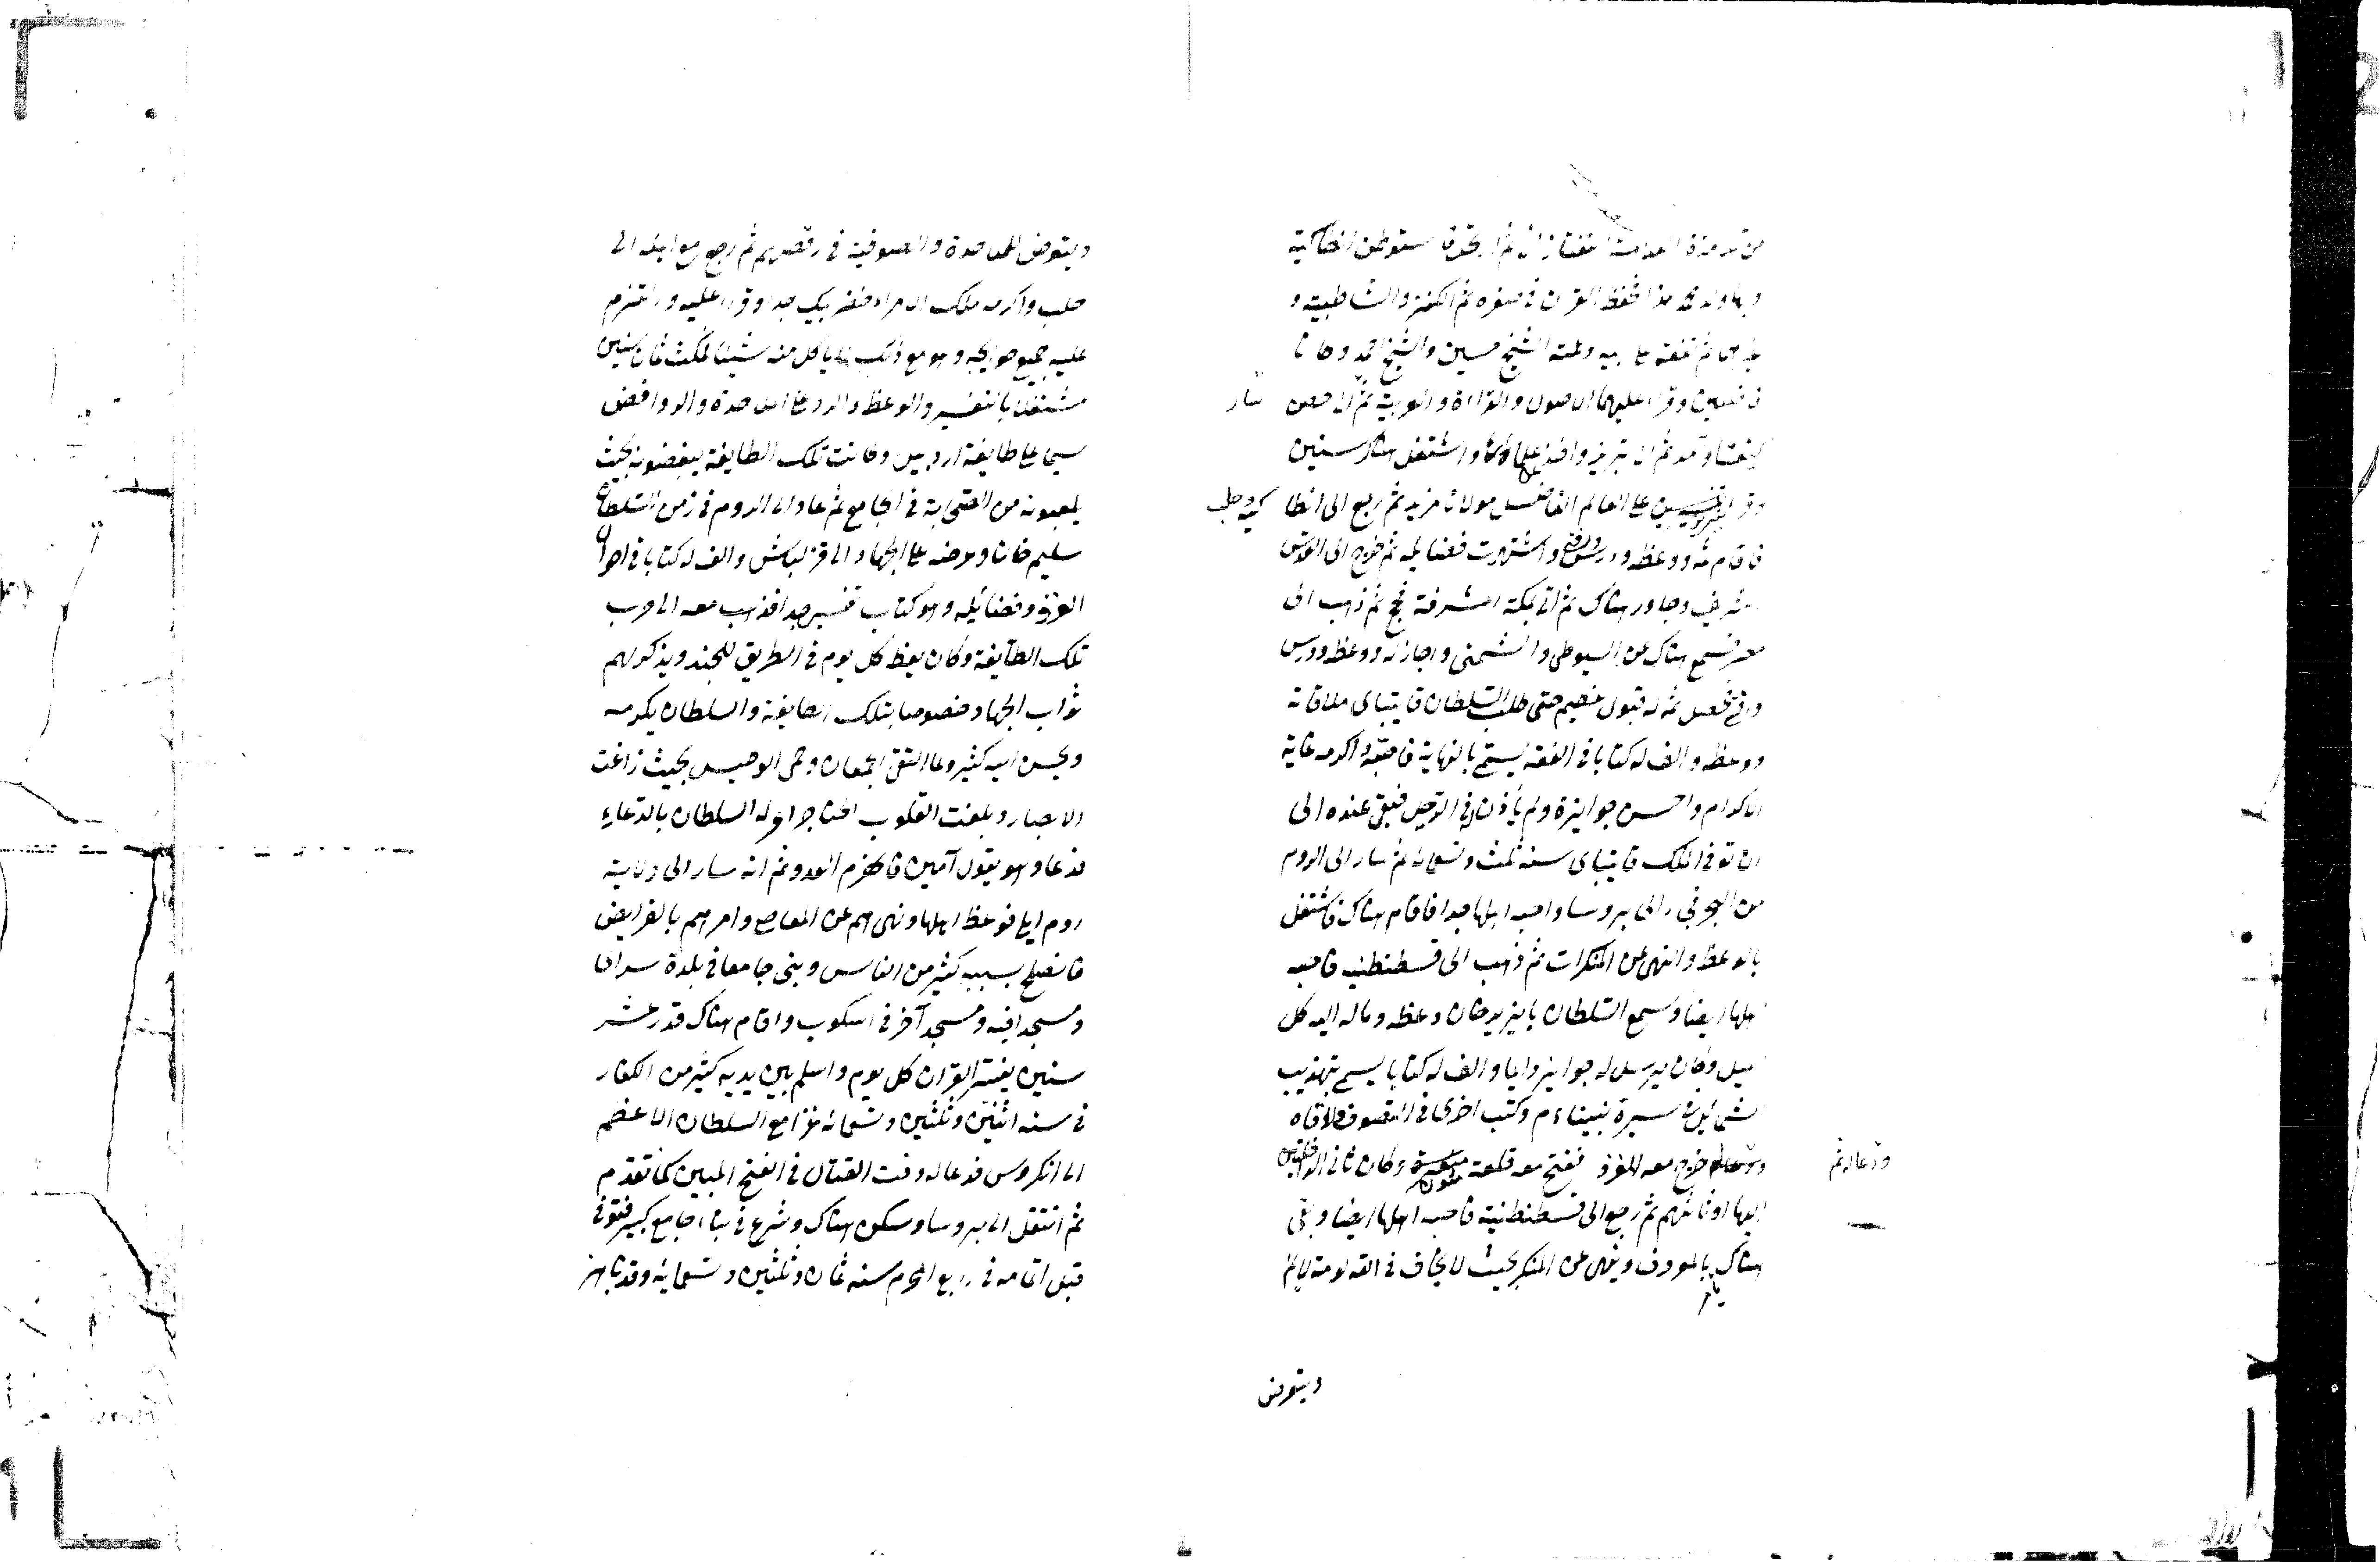 من تلامذة العلامة التفتازاني ثم ارتحل فاستوطن انطاكية
وبها ولد محمد هذا فحفظ القرآن في صغره ثم الكنز والشاطبية و
غيرهما ثم تفقه على ابيه وعمه الشيخ حسين والشيخ احمد وكانا
فاضلين وقراء عليهما الاصول والقراءة والعربية ثم الى حصن
كيفا وآمد ثم الى تبريز واخذ عن علمائها واشتغل هناك سنين
على العالم الفاضل مولانا مزيد ثم رجع الى انطا كية وحلب
فاقام ثمه ووعظ ودرس وافتى واشتهرت فضايله ثم خرج الى القدس
الشريف وجاور هناك ثم اتى مكة المشرفة فحج ثم ذهب الى
مصر فسمع هناك عن السيوطي والشمني واجاز له ووعظ ودرس
وافتى فحصل ثمه له قبول عظيم حتى طلب السلطان قايتباى ملاقاته
ووعظه والف له كتابا في الفقه يسمى بالنهاية فاحبه واكرمه غاية
الاكرام واحسن جوايزه ولم يأذن له في الرحيل فبقى عنده الى
ان توفى الملك قايتباى سنة ثلث وتسعمائة ثم سار الى الروم
من البحر فى الى بروسا واحبه اهلها جدا فاقام هناك فاشتغل
بالوعظ والنهى عن المنكرات ثم ذهب الى قسطنطنيه فاحبه
اهلها ايضا وسمع السلطان بايزيد خان وعظه وماله اليه كل
ميل وكان يرسل له جوايز دايما والف له كتابا يسمى بتهذيب
الشمائل في سيرة نبيناءم وكتب اخرى في التصوف ولاقاه
ودعا له ثم خرج معه للغزو ففتح معه قلعة متون وكان ثانى الداخلين
اليها او ثالثهم ثم رجع الى قسطنطنية فاحبه اهلها ايضا وبقى
هناك يأمر بالمعروف وينهى عن المنكر بحيث لا يخاف في الله لومة لايم
ويتعرض
ويتعرض للملاحدة والصوفية في رقصهم ثم رجع مع اهله الى
حلب واكرمه ملك الامراء خضر بيك جدا وقراء عليه والتزم
عليه جميع حوايجه وهو مع ذلك لا ياكل منه شيئا فمكث ثمان سنين
مشتغلا بالتفسير والوعظ والرد على الملاحدة والروافض
سيما على طايفة اردبيل وكانت تلك الطايفة يبغضونه بحيث
يلعنونه من الصحابة في الجامع ثم عاد الى الروم في زمن السلطان
سليم خان وحرضه على الجهاد الى قزلباش والف له كتابا في احوال
الغزو وفضائله وهو كتاب نفيس جدا فذهب معه الى حرب
تلك الطايفة وكان يعظ كل يوم في الطريق للجند ويذكر لهم
ثواب الجهاد خصوصا بتلك الطايفة والسلطان يكرمه
ويحسن اليه كثير ولما التقى الجمعان وحمى الوطيس بحيث زاغت
الابصار وبلغت القلوب الحناجر امره السلطان بالدعاء
فدعا وهو يقول آمين فانهزم العدو ثم انه سار الى ولاية
روم ايلى فوعظ اهلها ونهى هم عن المعاصى وامرهم بالفرايض
فانصلح بسببه كثير من الناس وبنى جامعا في بلدة سراى
ومسجدا فيه ومسجد آخر في اسكوب واقام هناك قدر عشر
سنين يفسر القرآن كل يوم واسلم بين يديه كثير من الكفار
في سنة اثنين وثلثين وتسعمائة غزا مع السلطان الاعظم
الى انكروس فدعا له وقت القتال في الفتح المبين كما تقدم
ثم انتقل الى بروسا وسكن هناك وشرع في بناء جامع كبير فتوفى
قبل اتمامه في رابع المحرم سنة ثمان وثلثين وتسعمايه وقد ناهز